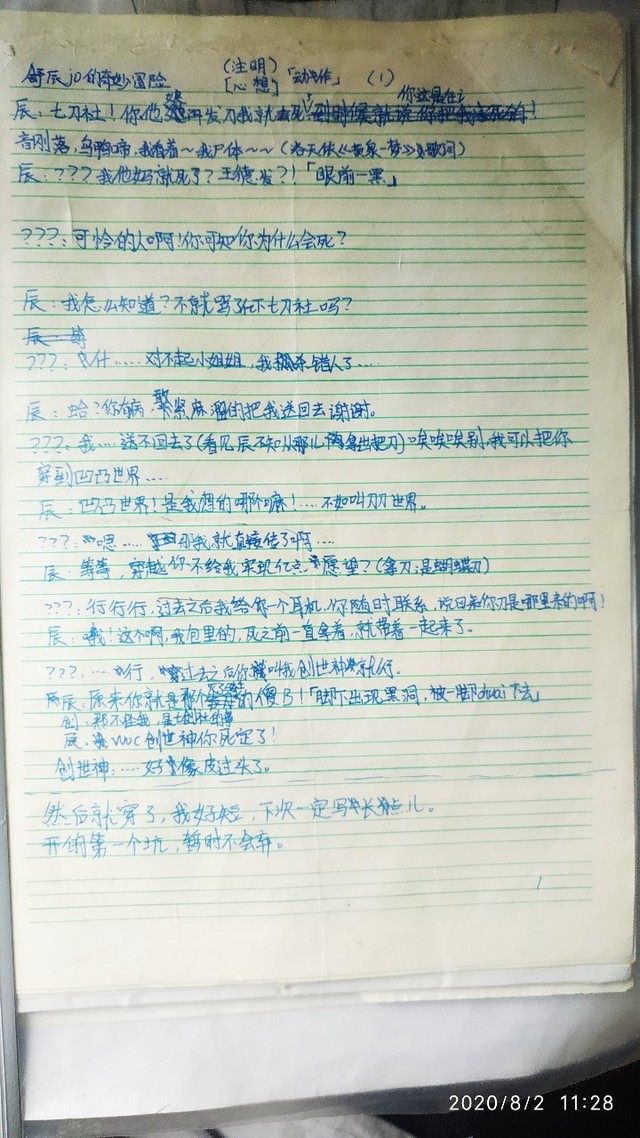 舒辰jo的奇妙冒险 (注明) [心想] 「动作」 (1)
辰：七刀社！你他 再发刀我就去死！
音刚落，乌鸦啼，我看着～我尸体～～（洛天依《黄泉一梦》歌词）
辰：？？？我他妈就死了？王德发？！「眼前一黑」
？？？：可怜的人啊！你可知你为什么会死？
辰：我怎么知道？不就骂了下七刀社吗？
辰：等
？？？：什……对不起小姐姐，我杀错人了…
辰：蛤？你有病，紧紧麻溜的把我送回去谢谢。
？？？：我……送不回去了(看见辰不知从那儿拿出把刀)唉唉唉别，我可以把你
穿到凹凸世界……
辰：凹凸世界！是我想的哪个嘛！……不如叫刀刀世界。
？？？：嗯……那我就直接传了啊……
辰：等等，穿越你不给我实现亿点愿望？(拿刀：是蝴蝶刀)
？？？：行行行，过去之后我给你一个耳机，你随时联系，说回来你刀是哪里来的啊！
辰：哦！这个啊，我包里的，死之前一直拿着，就带着一起来了。
？？？：…行，穿过去之后你就叫我创世神就行。
辰：原来你就是那个 的傻B！「脚下出现黑洞，被一脚chuai下去」
创：那不怪我，是七创社的事
辰：WOC创世神你死定了！
创世神：……好像皮过头了。
然后就穿了，我好短，下次一定写长点儿。
开的第一个坑，暂时不会弃。
1
2020/8/2 11:28